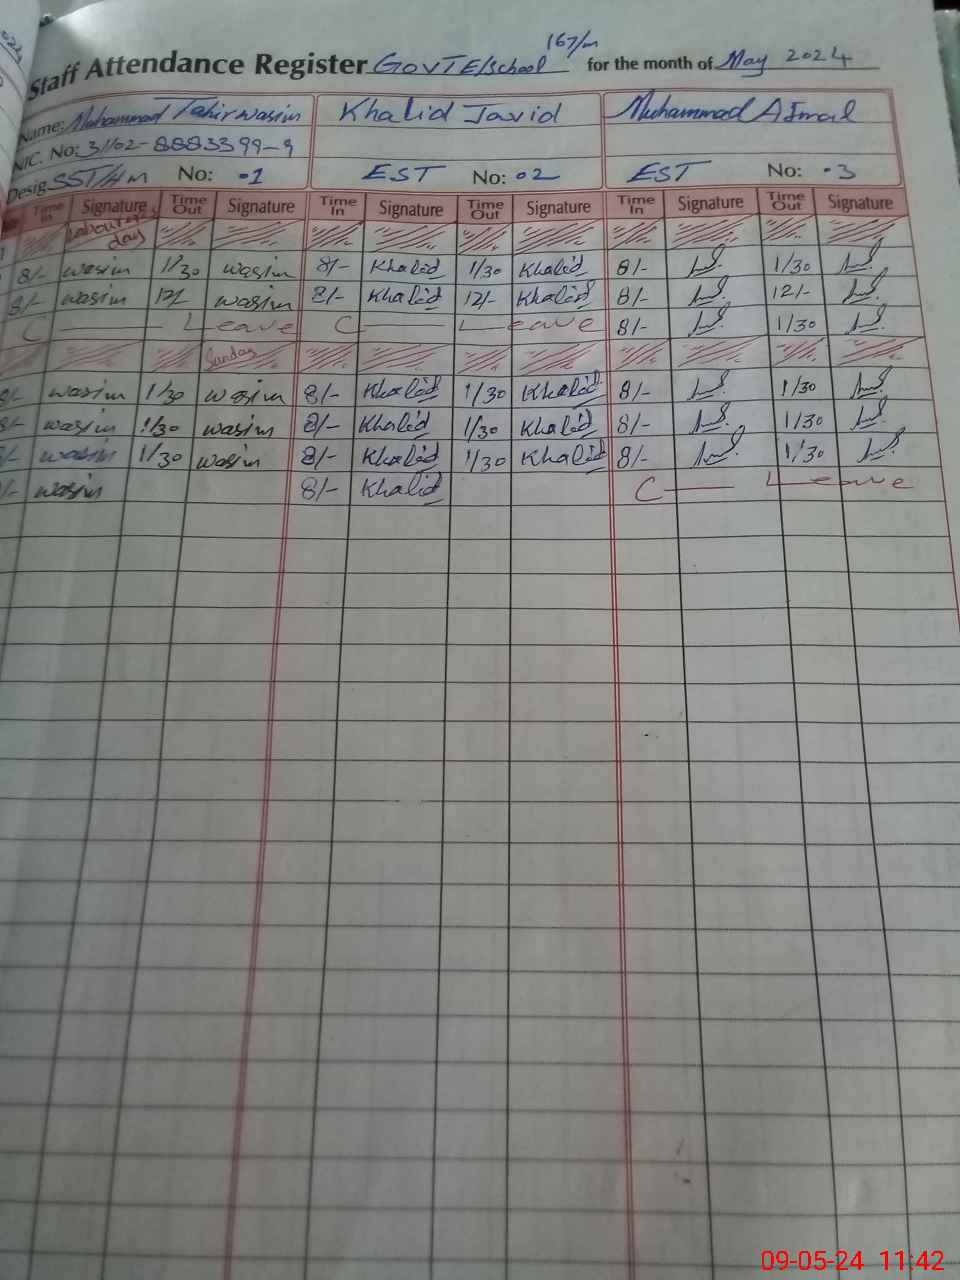 167/m
Staff Attendance Register GovTE/School for the month of May 2024
Name: Muhammad Tahir wasim Khalid Javid Muhammad Ajmal
NIC. No: 31102-8883399-9
Desig. SST/Hm No: .1 EST No: 02 EST No: .3
Time In Signature Time Out Signature Time In Signature Time Out Signature Time In Signature Time Out Signature
Labour day
8/- wasim 1/30 wasim 8/- Khalid 1/30 Khalid 8/- 1/30
8/- wasim 12/- wasim 8/- Khalid 12/- Khalid 8/- 12/-
C Leave C Leave 8/- 1/30
Sunday
8/- wasim 1/30 wasim 8/- Khalid 1/30 Khalid 8/- 1/30
8/- wasim 1/30 wasim 8/- Khalid 1/30 Khalid 8/- 1/30
8/- wasim 1/30 wasim 8/- Khalid 1/30 Khalid 8/- 1/30
/- wasim 8/- Khalid C Leave
09-05-24 11:42